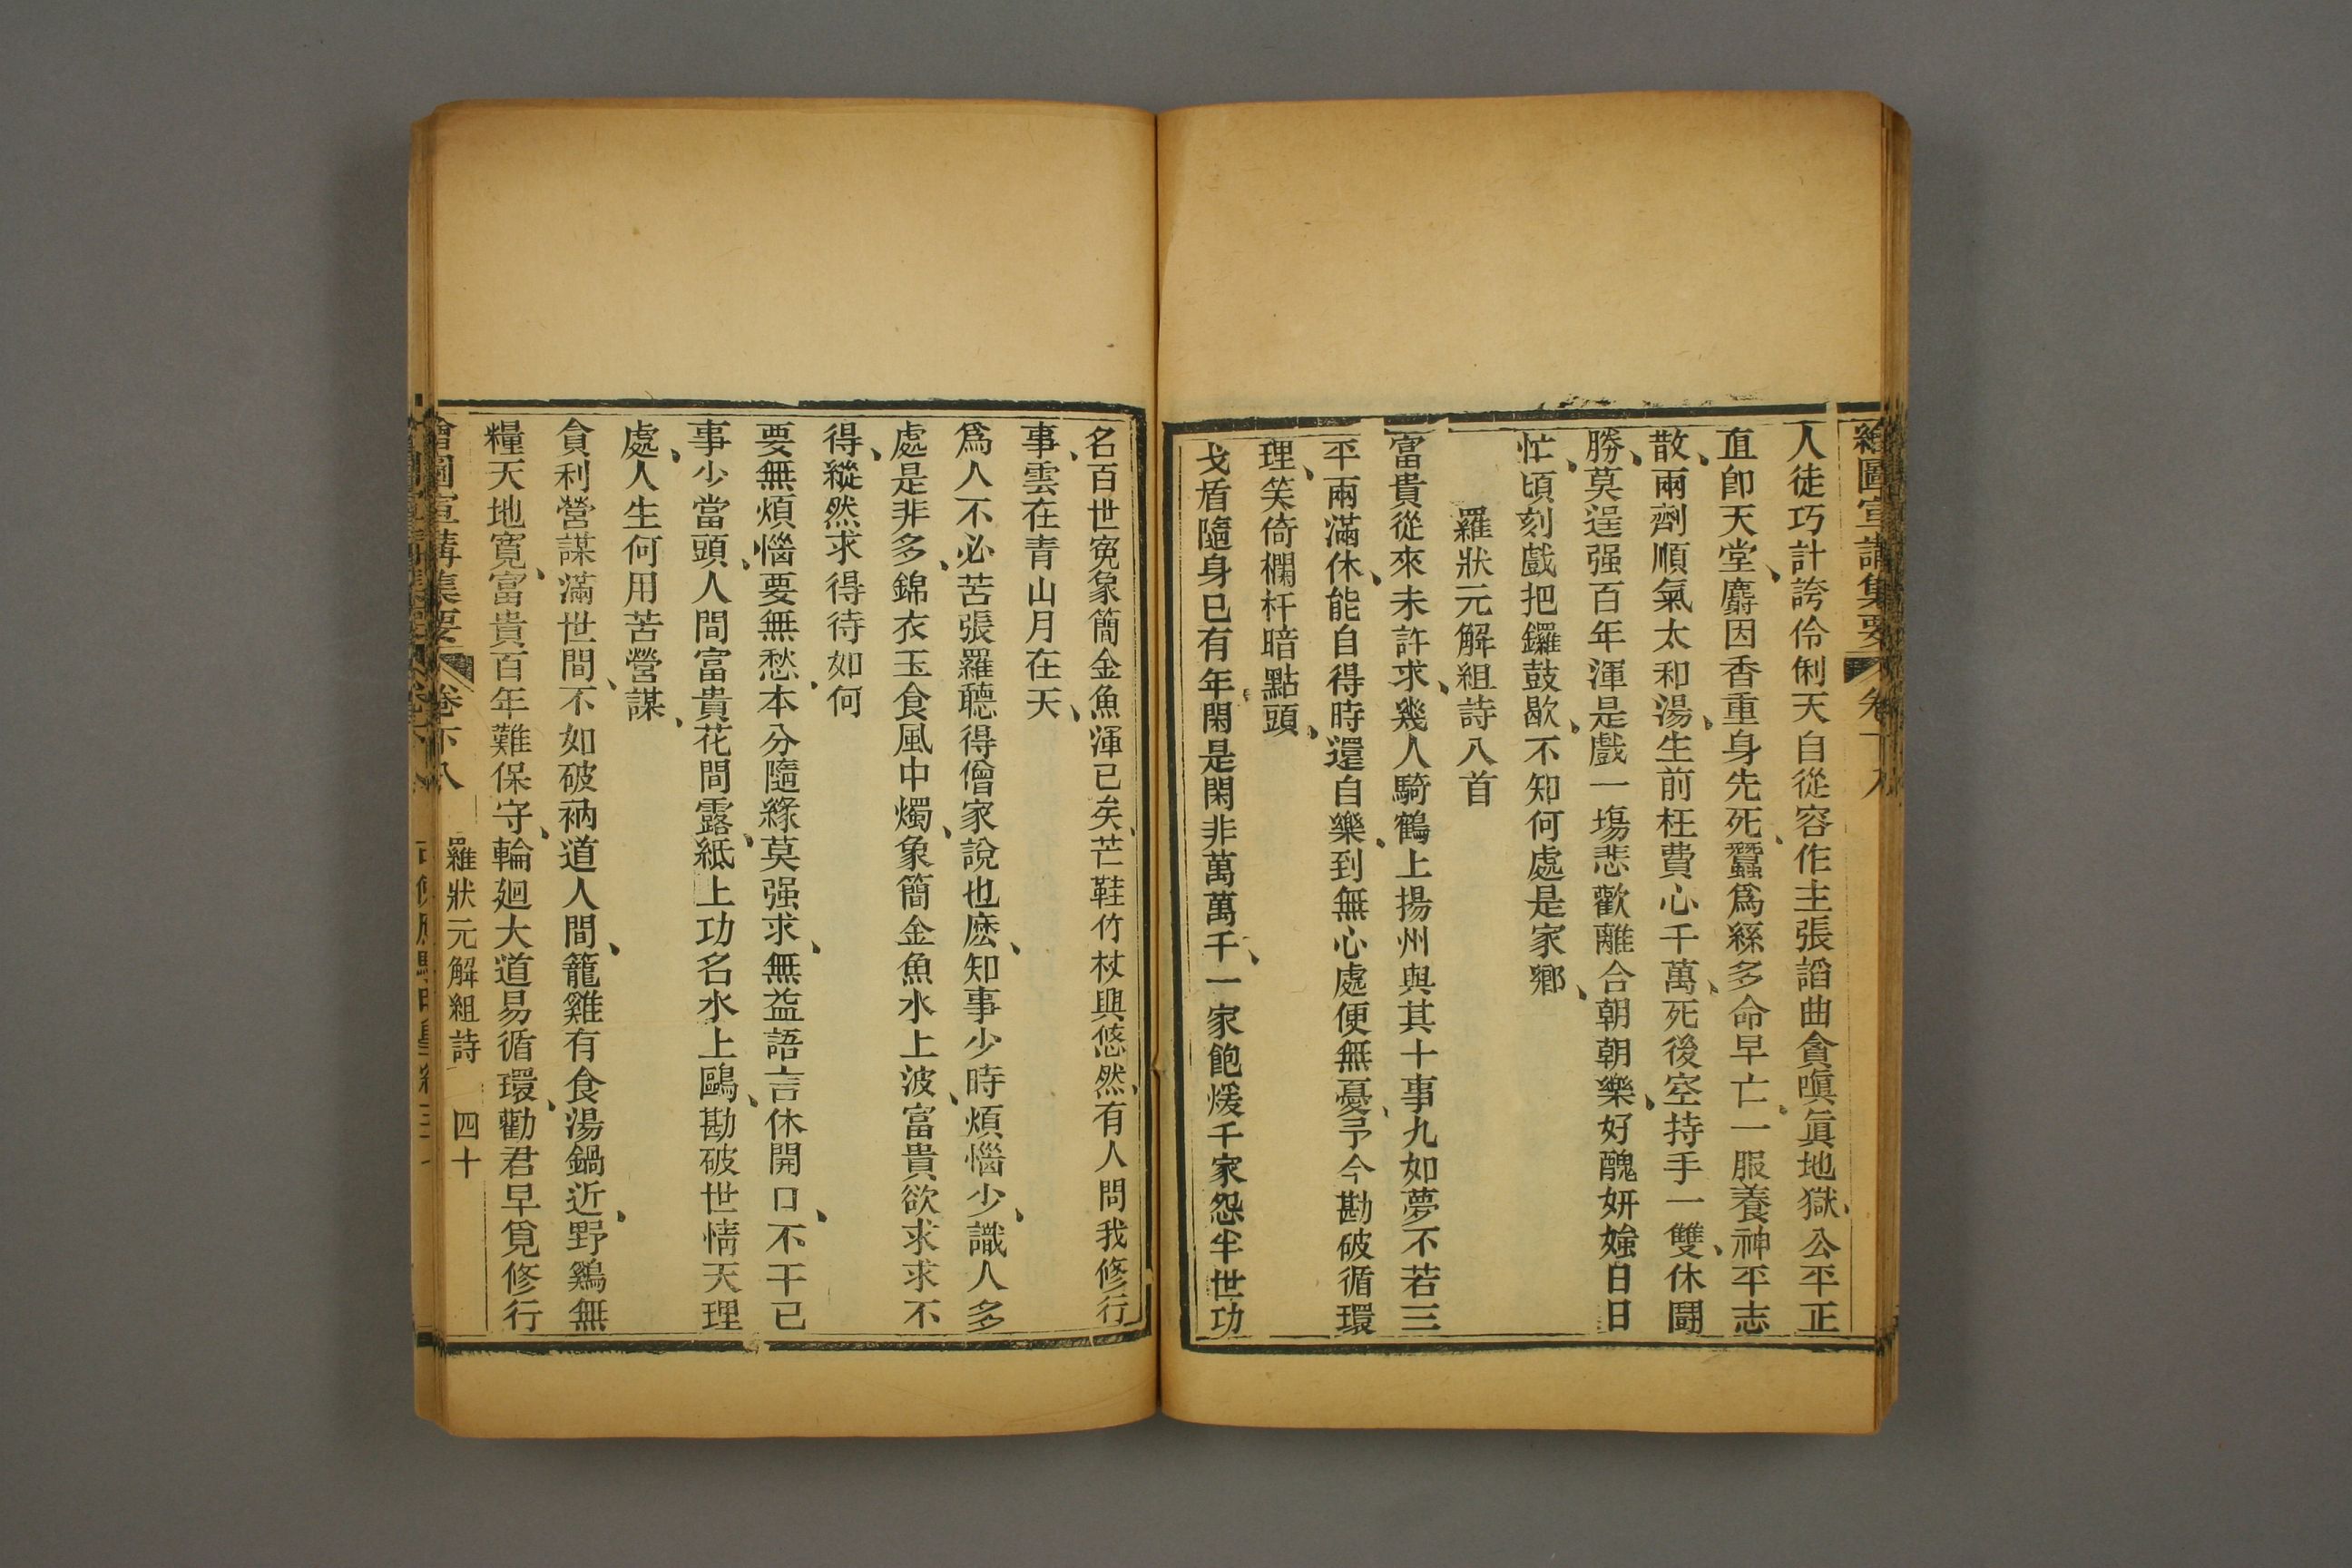 繪圖宣講集要 卷下八
人徒巧計誇伶俐天自從容作主張謟曲貪嗔眞地獄、公平正
直卽天堂、麝因香重身先死、蠶爲絲多命早亡、一服養神平志
散、兩劑順氣太和湯、生前枉費心千萬、死後空持手一雙、休鬪
勝、莫逞强百年渾是戲一塲悲歡離合朝朝樂、好醜妍媸日日
忙、頃刻戲把鑼鼓歇、不知何處是家鄉、
羅狀元解組詩八首
富貴從來未許求、幾人騎鶴上揚州與其十事九如夢不若三
平兩滿休、能自得時還自樂、到無心處便無憂、予今勘破循環
理、笑倚欄杆暗點頭、
戈盾隨身已有年、閑是閑非萬萬千、一家飽煖千家怨半世功
名百世寃象簡金魚渾已矣、芒鞋竹杖興悠然、有人問我修行
事、雲在青山月在天、
爲人不必苦張羅聽得僧家說也麽、知事少時煩惱少、識人多
處是非多、錦衣玉食風中燭、象簡金魚水上波、富貴欲求求不
得、縱然求得待如何
要無煩惱要無愁、本分隨緣莫强求、無益語言休開口、不干已
事少當頭、人間富貴花間露、紙上功名水上鷗、勘破世情天理
處、人生何用苦營謀、
貪利營謀滿世間、不如破衲道人間、籠雞有食湯鍋近、野鷄無
糧天地寛、富貴百年難保守、輪廻大道易循環、勸君早覓修行
繪圖宣講集要 卷下八 羅狀元解組詩 四十